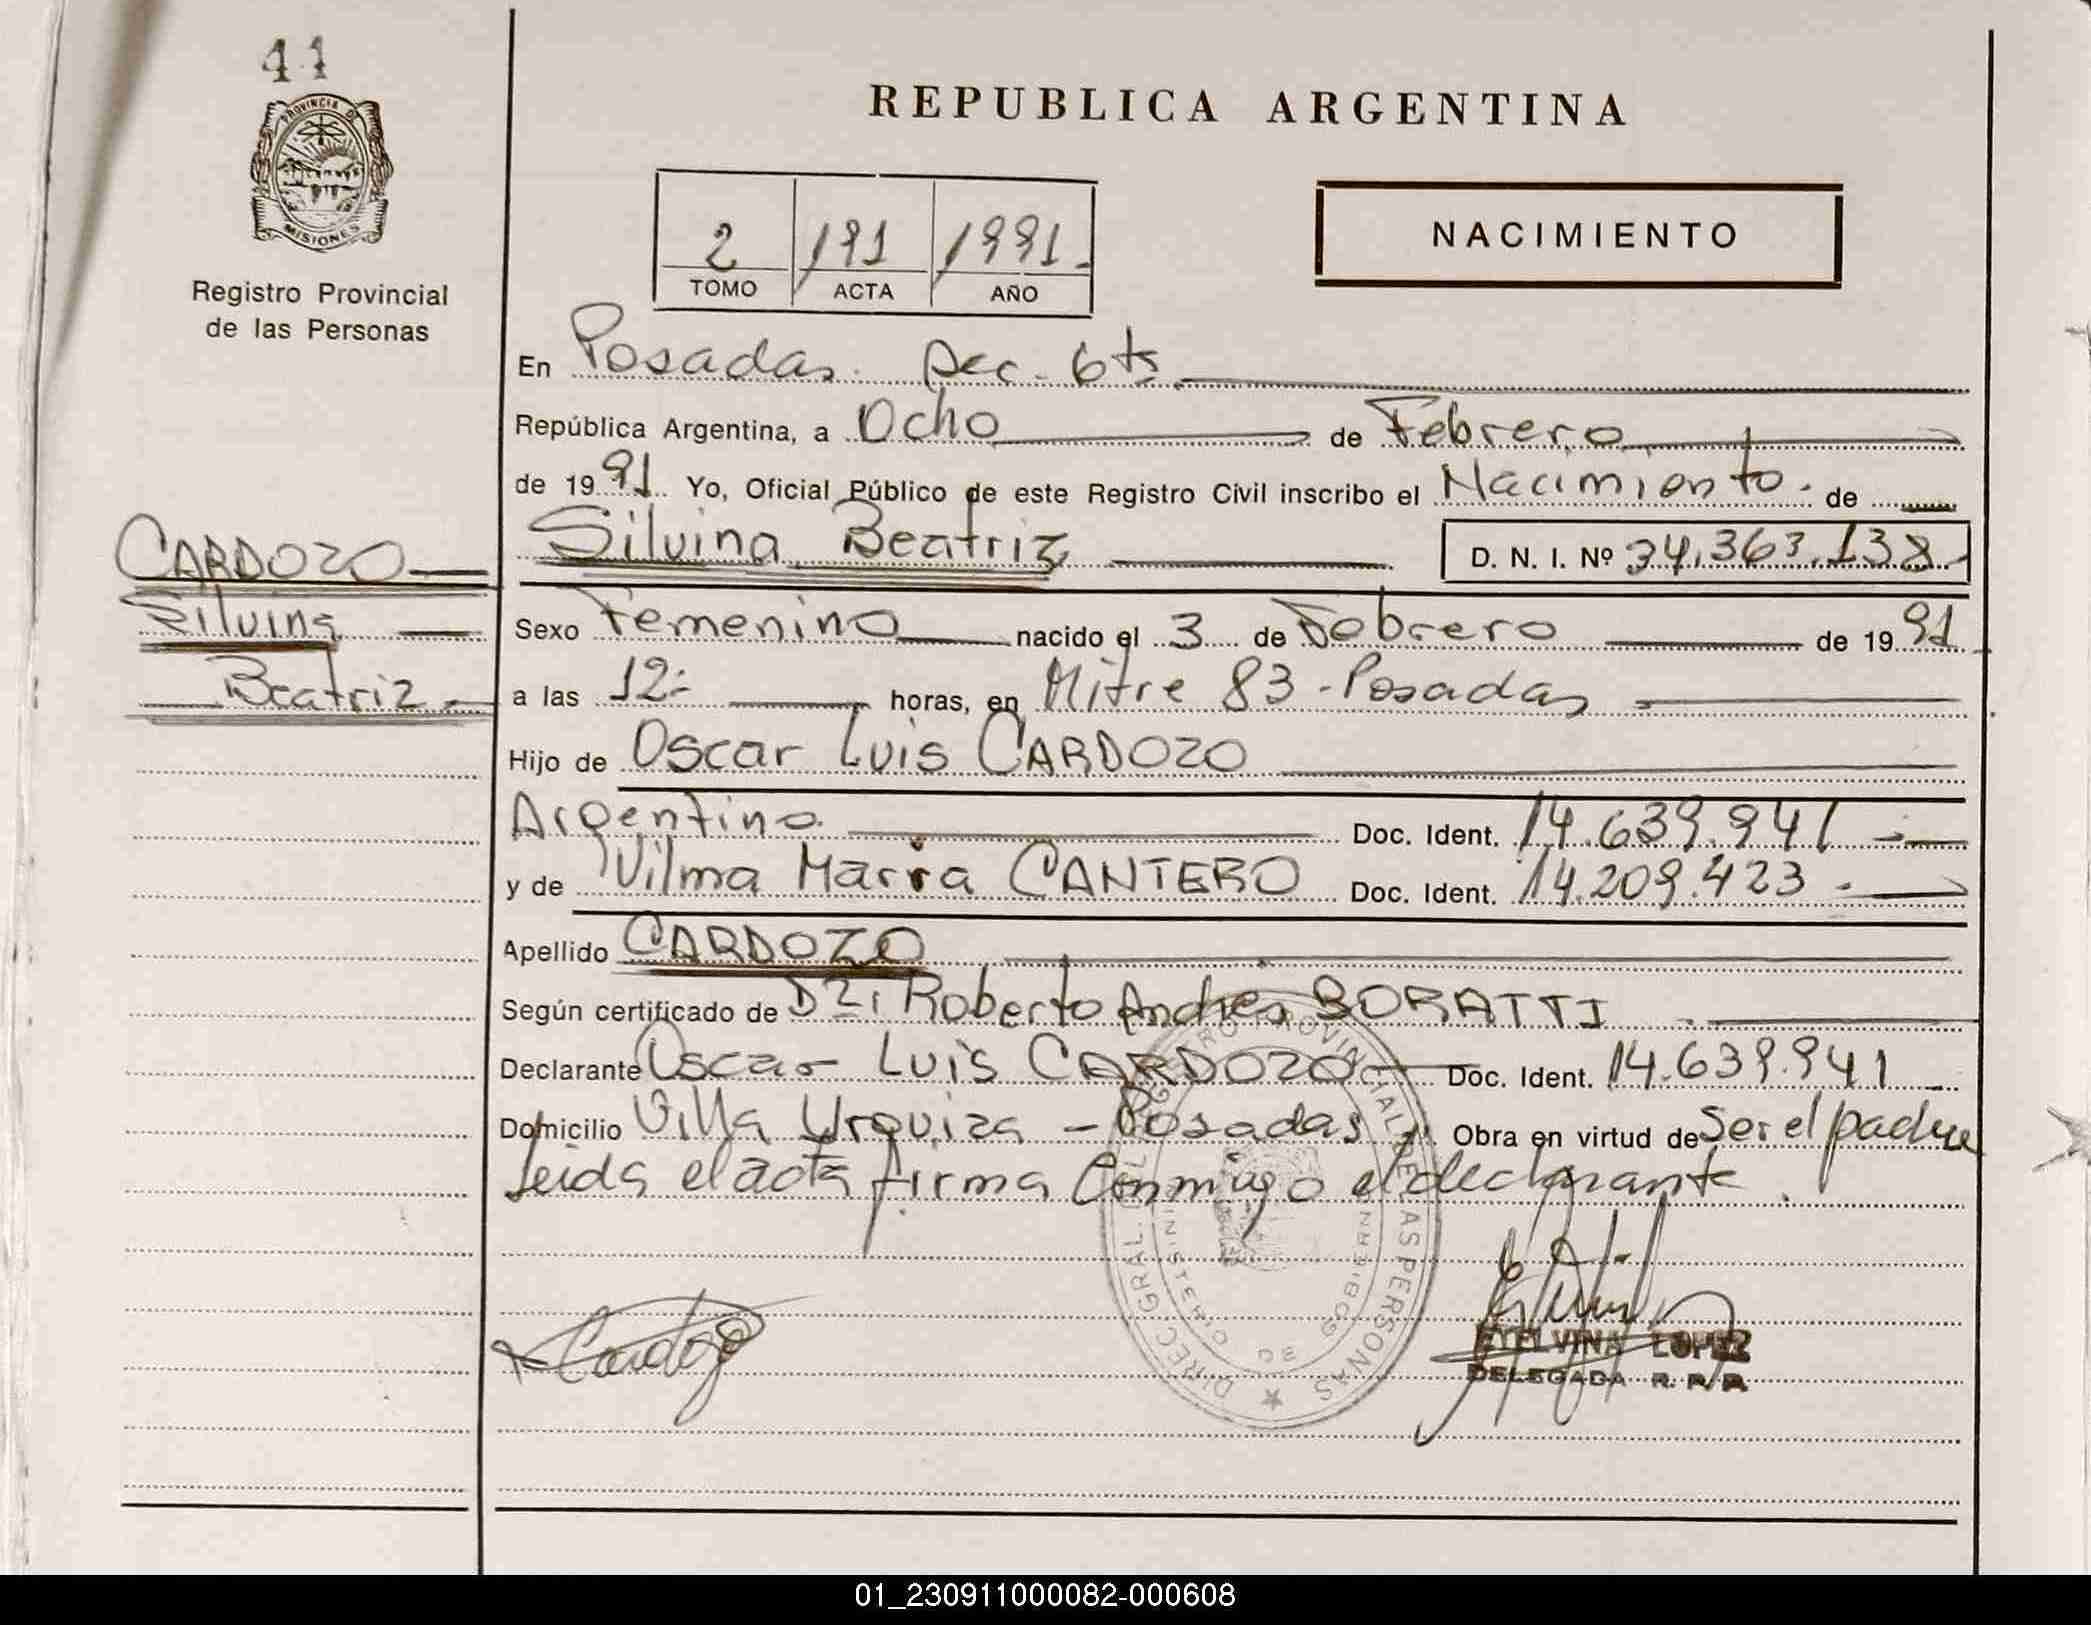 41
PROVINCIA DE
MISIONES
Registro Provincial
de las Personas
REPUBLICA ARGENTINA
2 191 1991.-
TOMO ACTA AÑO
NACIMIENTO
En Posadas. Sec. 6ta
República Argentina, a Ocho de Febrero
de 1991 Yo, Oficial Público de este Registro Civil inscribo el Nacimiento. de
Silvina Beatriz D. N. I. Nº 34.363.138-
CARDOZO
Silvina
Beatriz
Sexo Femenino nacido el 3 de Febrero de 1991
a las 12:- horas, en Mitre 83 - Posadas
Hijo de Oscar Luis CARDOZO
Argentino. Doc. Ident. 14.639.941 -
y de Vilma Maria CANTERO Doc. Ident. 14.209.423 -
Apellido CARDOZO
Según certificado de Dr. Roberto Andrés BORATTI
Declarante Oscar Luis CARDOZO Doc. Ident. 14.639.941
Domicilio Villa Urquiza - Posadas Obra en virtud de Ser el padre
Leida el acta firma Conmigo el declarante.
DIREC. GRAL. DEL REGISTRO PROVINCIAL DE LAS PERSONAS
MINISTERIO DE GOBIERNO
Cardozo
ETELVINA LOPEZ
DELEGADA R. P. P.
01_230911000082-000608